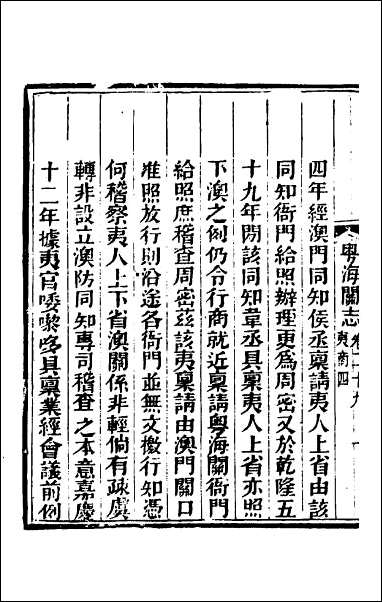 粤海關志 卷二十九 夷商四
四年經澳門同知侯丞禀請夷人上省由該
同知衙門給照辦理更爲周密又於乾隆五
十九年閉該同知韋丞具禀夷人上省亦照
下澳之例仍令行商就近禀請粤海關衙門
給照庶稽查周密茲該夷禀請由澳門關口
准照放行則沿途各衙門並無文檄行知憑
何稽察夷人上下省澳關係非輕倘有疎虞
轉非設立澳防同知專司稽查之本意嘉慶
十二年據夷官喥嚟哆具禀業經會議前例